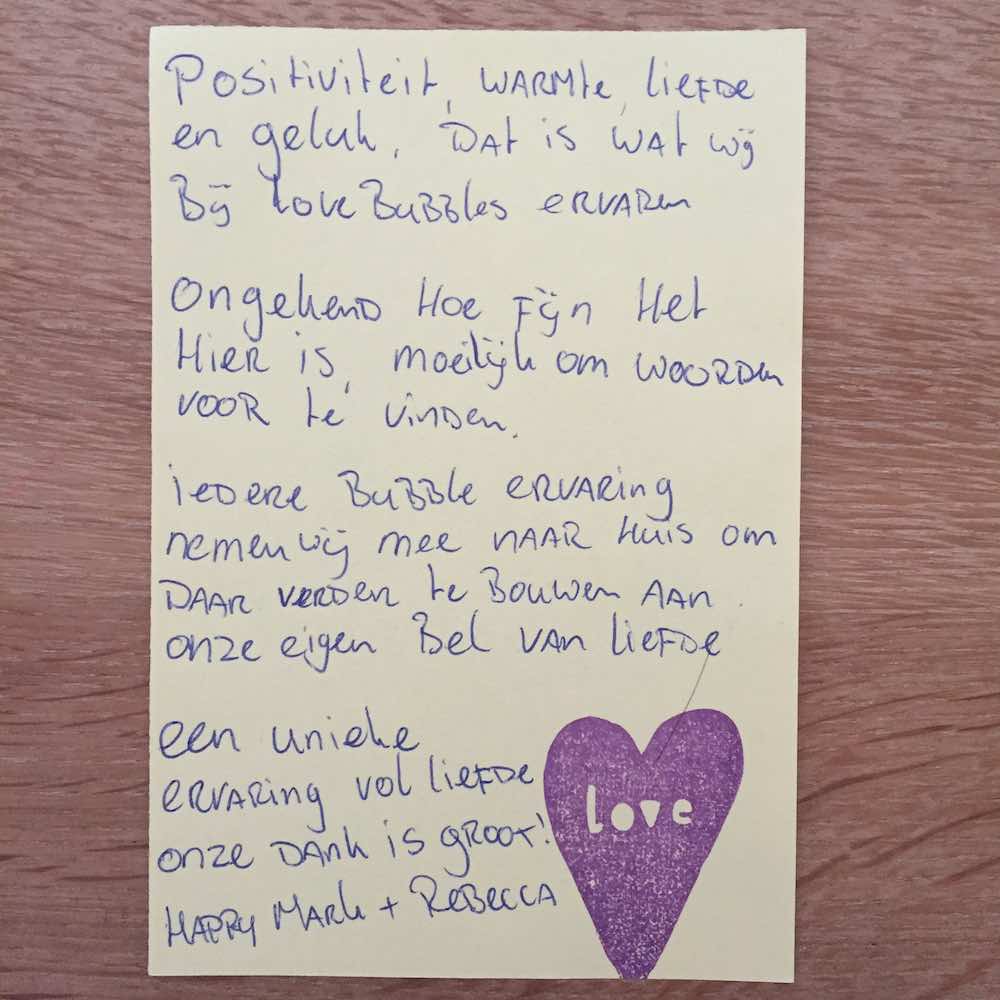 Positiviteit, warmte, liefde
en geluk. Dat is wat wij
Bij LoveBubbles ervaren
Ongekend Hoe fijn Het
Hier is, moeilijk om woorden
voor te vinden.
iedere Bubble ervaring
nemen wij mee naar Huis om
Daar verder te Bouwen aan
onze eigen Bel van liefde
een unieke
ervaring vol liefde
onze Dank is groot!
Happy Mark + Rebecca
love